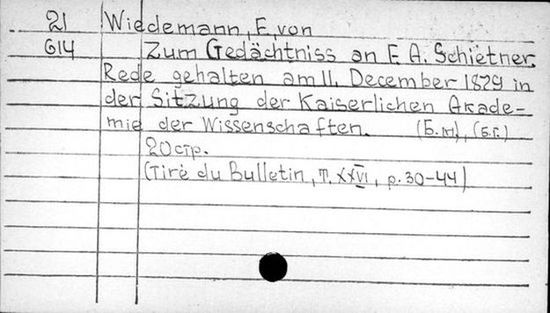 21 Wiedemann, F. von
G14 Zum Gedächtniss an F. A. Schietner.
Rede gehalten am 11. December 1879 in
der Sitzung der Kaiserlichen Akade-
mie der Wissenschaften. (Б.м), (Б.г.)
20 стр.
(Tiré du Bulletin, T. XXVI, p. 30-44)